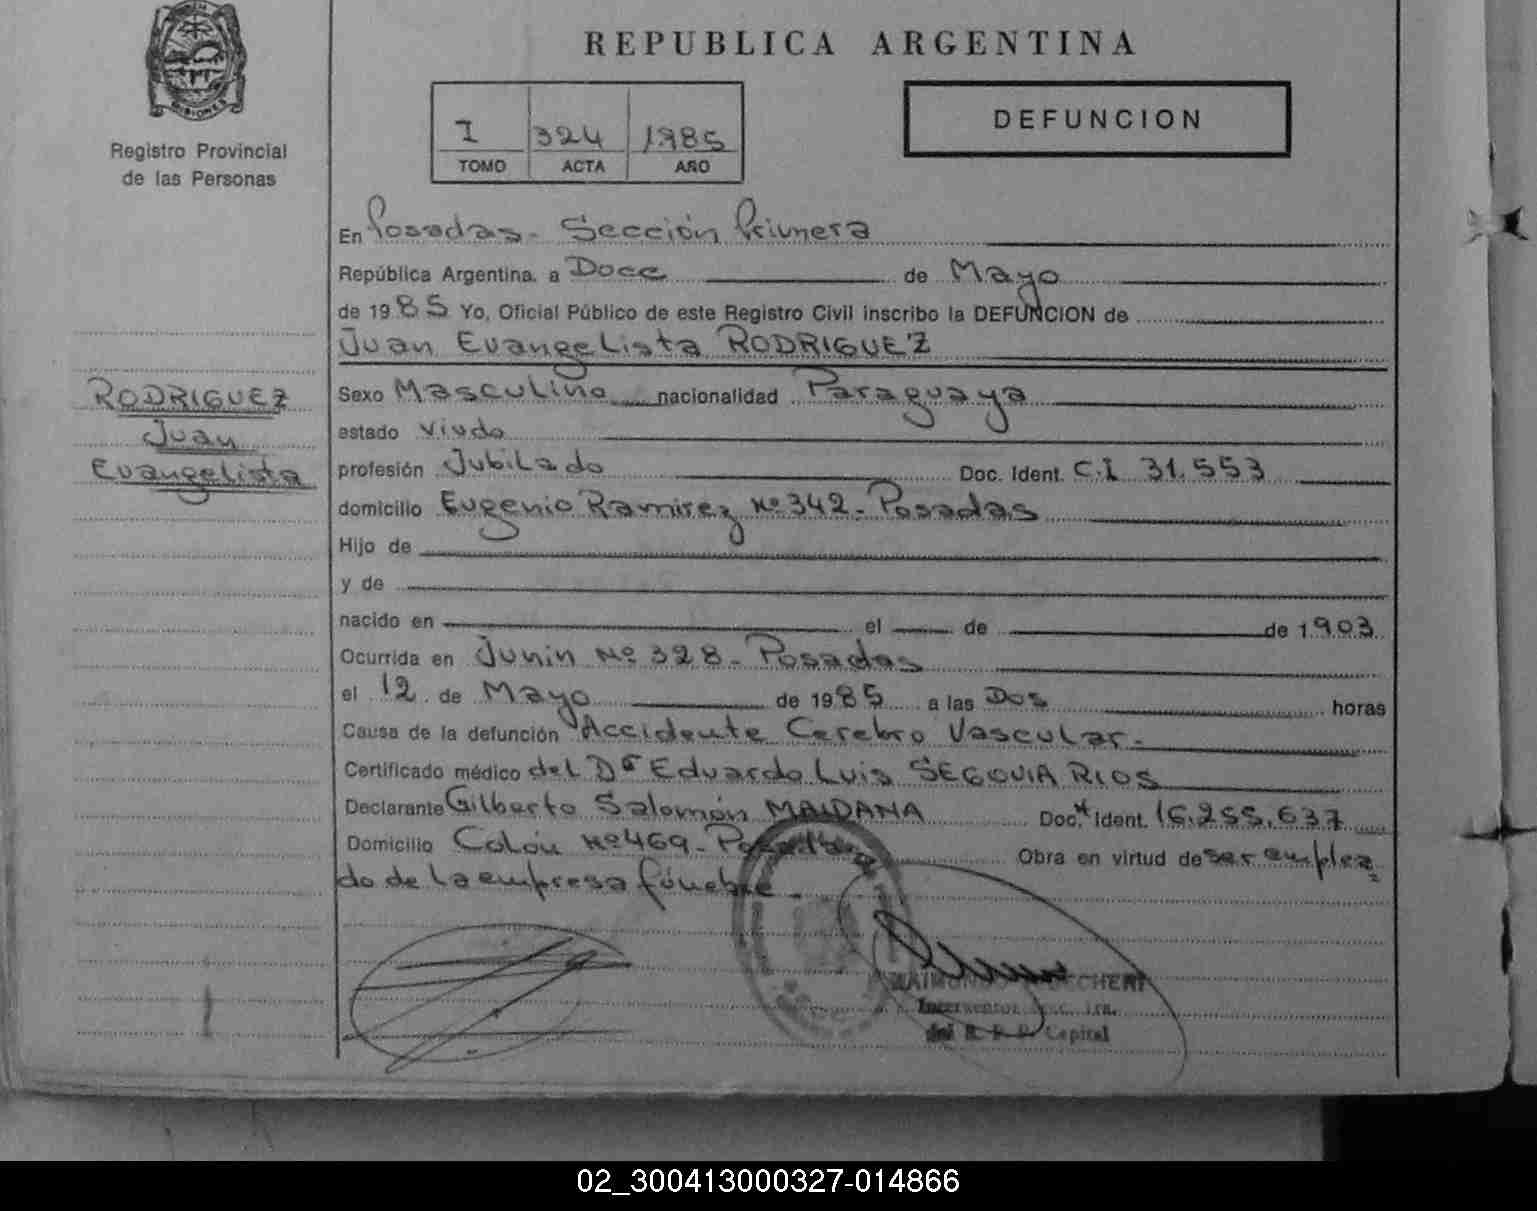 MISIONES
Registro Provincial
de las Personas
RODRIGUEZ
Juan
Evangelista
REPUBLICA ARGENTINA
I 324 1985
TOMO ACTA AÑO
DEFUNCION
En Posadas - Sección Primera
República Argentina, a Doce de Mayo
de 1985 Yo, Oficial Público de este Registro Civil inscribo la DEFUNCION de
Juan Evangelista RODRIGUEZ
Sexo Masculino nacionalidad Paraguaya
estado Viudo
profesión Jubilado Doc. Ident. C.I 31.553
domicilio Eugenio Ramirez Nº 342 - Posadas
Hijo de
y de
nacido en el de de 1903
Ocurrida en Junin Nº 328 - Posadas
el 12 de Mayo de 1985 a las Dos horas
Causa de la defunción Accidente Cerebro Vascular.-
Certificado médico del Dr Eduardo Luis SEGOVIA RIOS
Declarante Gilberto Salomón MAIDANA Doc. Ident. 16.255.637
Domicilio Colón Nº 469 - Posadas Obra en virtud de ser emplea
do de la empresa fúnebre -
RAIMUNDO
Interventor Secc. 1ra.
del R. P. P. Capital
02_300413000327-014866